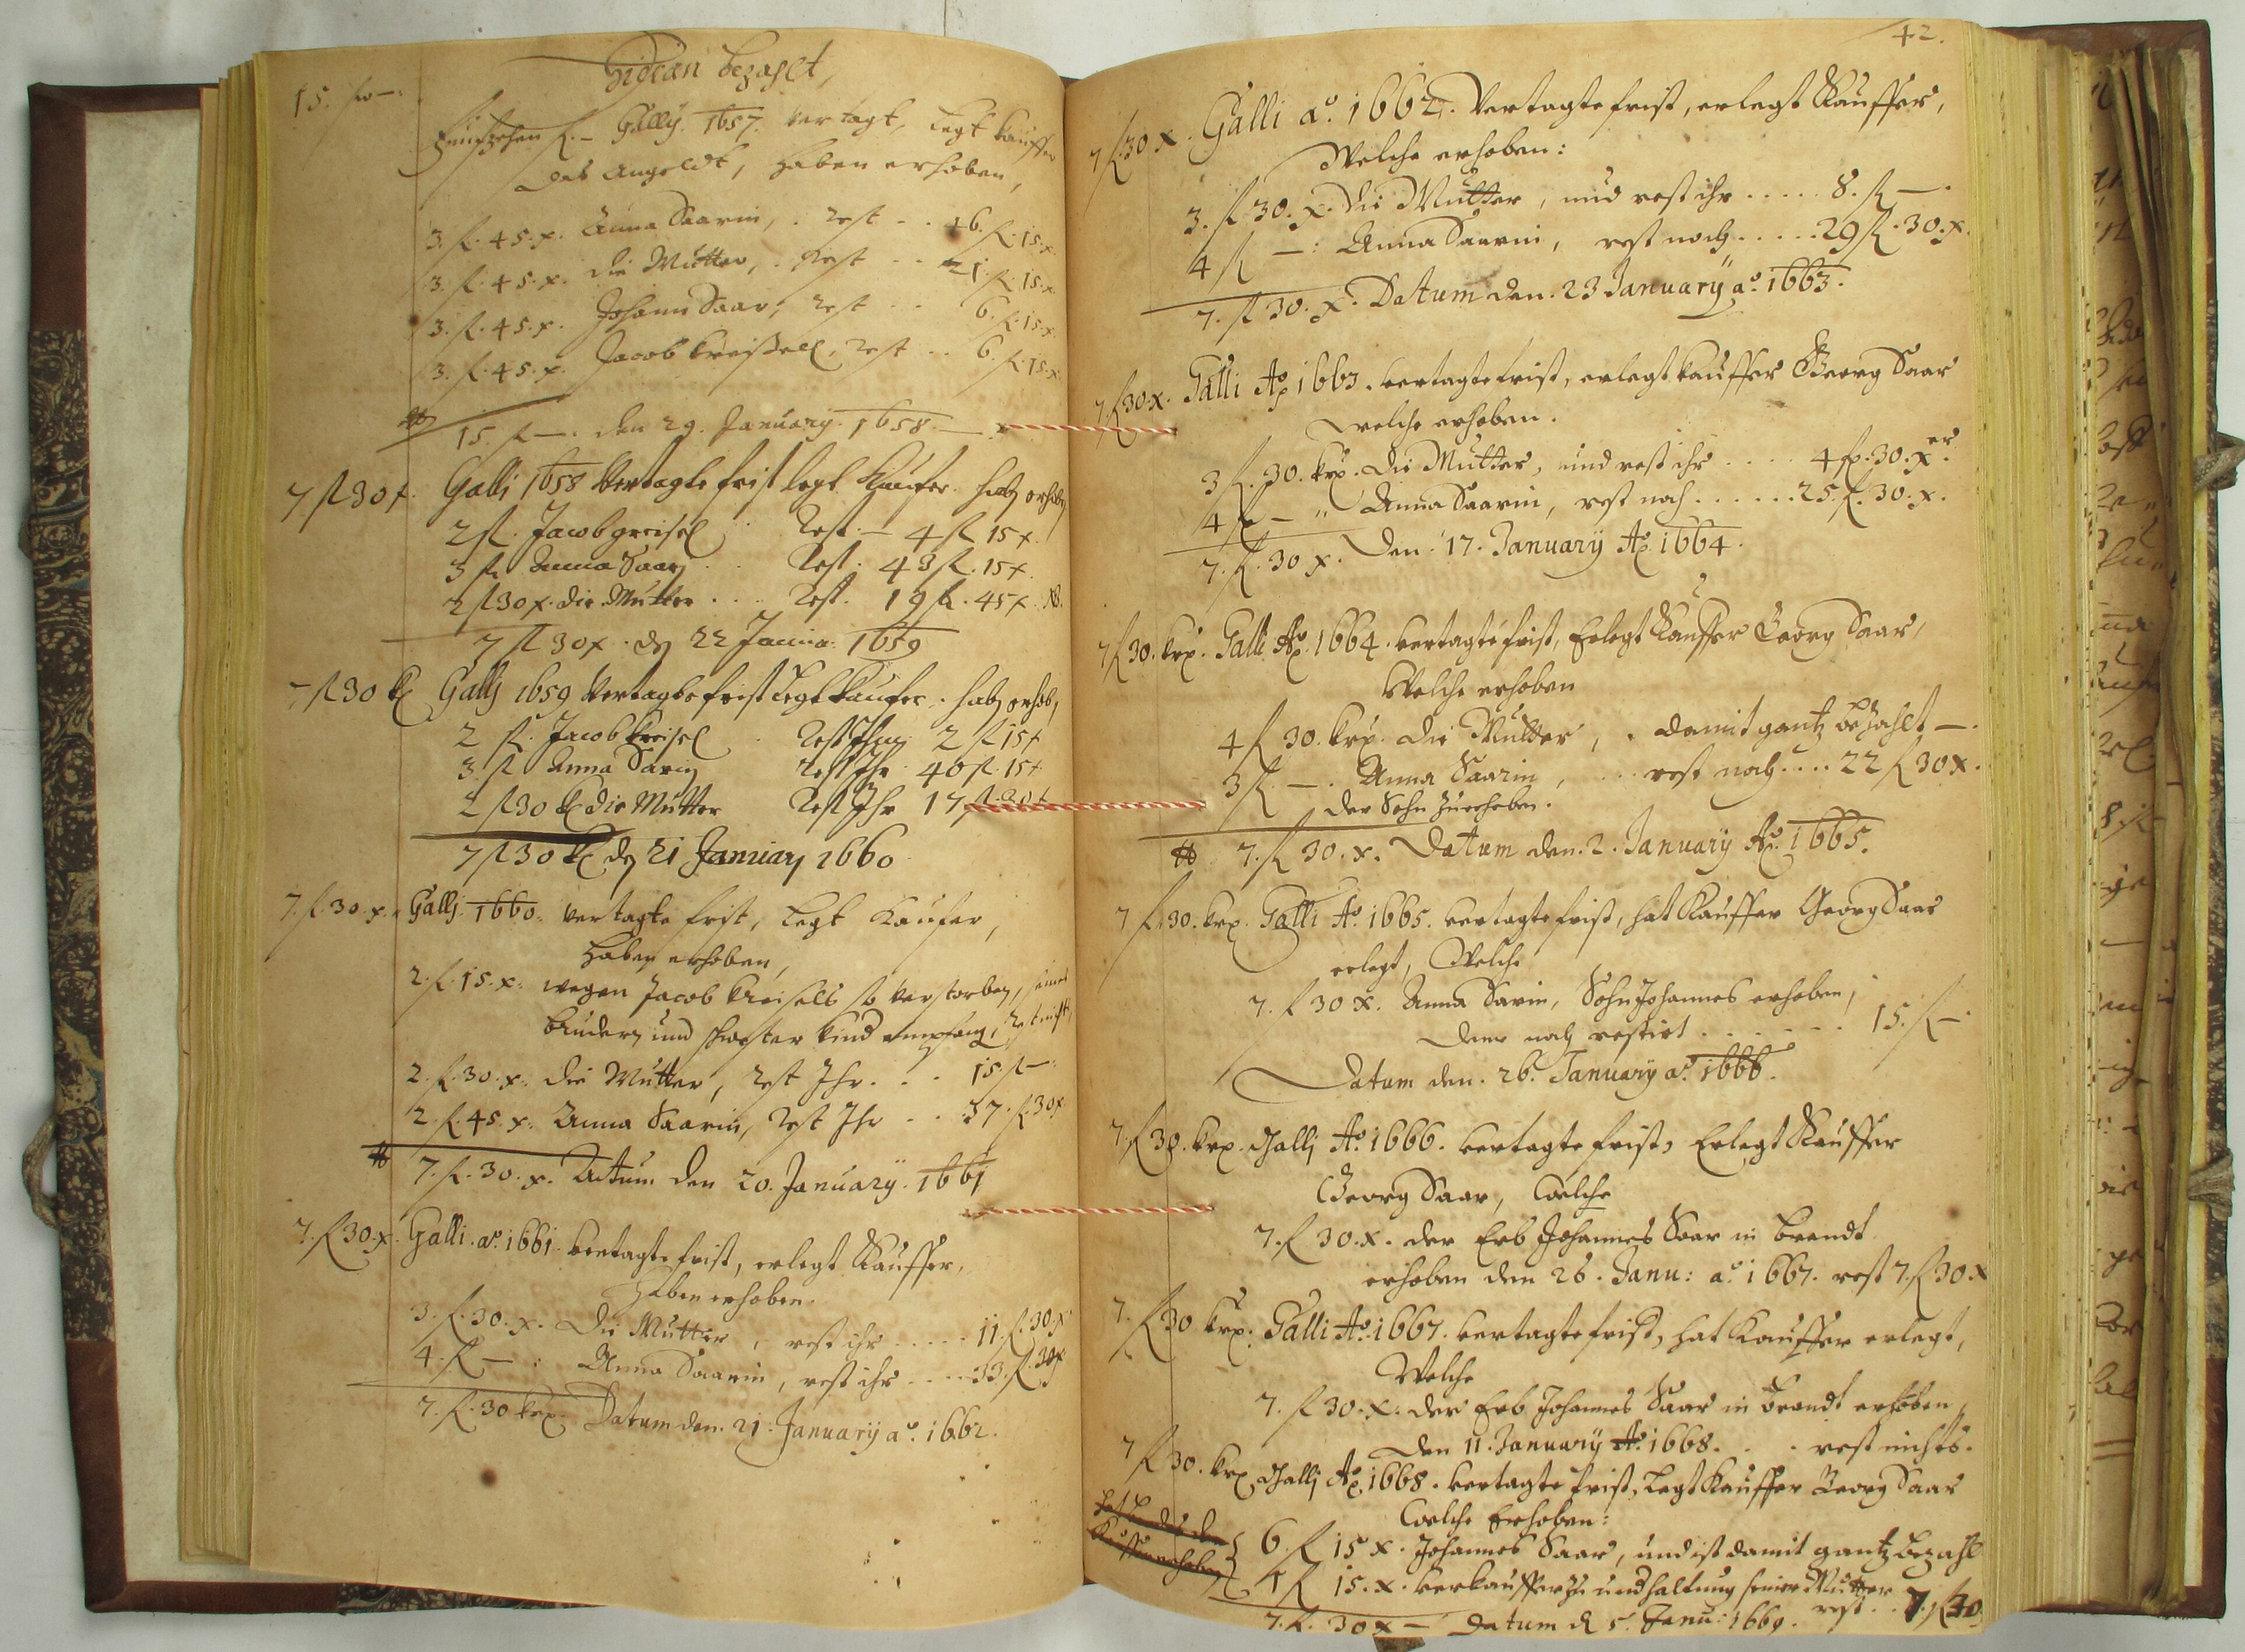 Hidran bezahlt,
15. fl —.
Fünfzehen fl. — Gally. 1657. vertagt, Legt Kauffer
das Angeldt, haben erhoben,
3. fl. 45. x. Anna Saarin, . Rest - - 46. fl. 15. x
3. fl. 45. x. die Mutter, . Rest - - 21. fl. 15. x
3. fl. 45. x. Johann Saar, Rest - - 6. fl. 15. x
3. fl. 45. x. Jacob Kreißell, Rest - - 6. fl. 15. x
15. fl —. den 29. January. 1658 —
7 fl 30 x. Galli 1658 Vertagte frist legt Kaufer. hab erhob
2 fl. Jacob greisel Rest. — 4 fl 15 x.
3 fl. Anna Saarin Rest. 43 fl. 15 x.
2 fl 30 x. die Mutter . . . Rest. 19 fl. 45 x. NB.
7 fl 30 x. den 22 Janua: 1659
7 fl 30 k Gallj 1659 Vertagte frist Legt Kaufer. hab erhob,
2 fl. Jacob Kreisel Rest Ihm 2 fl 15 x
3 fl Anna Sarin Rest Ihr 40 fl. 15 x
2 fl 30 k die Mutter Rest Ihr 17 fl. 30 x
7 fl 30 k den 21 January 1660
7. fl. 30. x. Gallj. 1660. vertagte frist, Legt Kaufer,
haben erhoben,
2. fl. 15. x. wegen Jacob Kreisels so verstorben, seines
Brudern und schwester kind empfang, Rest nichts,
2. fl. 30. x. die Mutter, Rest Ihr. . . 15. fl —.
2. fl. 45. x. Anna Saarin, Rest Ihr . . . 37. fl. 30 x.
7. fl. 30. x. Actum den 20. January. 1661
7. fl 30. x. Galli. aº. 1661. vertagte frist, erlegt Kauffer,
Haben erhoben.
3. fl. 30. x. Die Mutter, rest ihr . . . . 11. fl. 30. x
4. fl — : Anna Saarin, rest ihr . . . . 33. fl. 30 x
7. fl. 30 krx. Datum den. 21. January aº. 1662.
42.
7 fl. 30 x. Galli aº. 1662. Vertagte frist, erlegt Kauffer,
Welche erhoben:
3. fl 30. x. die Mutter, und rest ihr . . . . . 8. fl —.
4 fl — : Anna Saarin, rest noch . . . . . 29 fl. 30. x.
7. fl 30. x. Datum den. 23 January aº. 1663.
7. fl 30. x. Galli Aº 1663. vertagte frist, erlegt kauffer Georg Saar
welche erhoben.
3 fl. 30. krx. die Mutter, und rest ihr . . . . 4 fl. 30. x er.
4 fl — " Anna Saarin, rest noch . . . . . . 25. fl. 30. x.
7. fl. 30 x. Den. 17. January Aº 1664.
7 fl 30. krx. Galli Aº. 1664. vertagte frist, Erlegt Kauffer Georg Saar,
Welche erhoben
4 fl 30. krx. die Mutter, . damit gantz bezahlt —.
3 fl. — . Anna Saarin, . . . rest noch . . . . 22 fl 30 x.
der Sohn zu erheben.
7. fl 30. x. Datum den. 2. January Aº 1665.
7 fl. 30. krx. Galli Aº. 1665. vertagte frist, hat Kauffer Georg Saar
erlegt, Welche
7. fl 30 x. Anna Sarin, Sohn Johannes erhoben,
deme noch restirt . . . . . . . 15. fl —.
Datum den. 26. January aº. 1666.
7. fl 30. krx. Gallj Aº. 1666. vertagte frist, Erlegt Kauffer
Georg Saar, Welche
7. fl 30. x. der Erb Johannes Saar in Brandt
erhoben den 26. Janu: aº. 1667. rest 7. fl 30. x
7. fl 30 krx. Galli Aº. 1667. vertagte frist, hat Kauffer erlegt,
Welche
7. fl 30. x. der Erb Johannes Saar in Brandt erhoben,
Den 11. January Aº. 1668. . . rest nichts.
7 fl 30. krx. Gallj Aº. 1668. vertagte frist, Legt Kauffer Georg Saar
Welche Erhoben:
6. fl 15 x. Johannes Saar, und ist damit gantz bezahl
1 fl 15. x. verkauffer zu undhaltung seiner Mutter
rest . . 7. fl 30
7. fl. 30 x — Datum d 5. Janu: 1669.